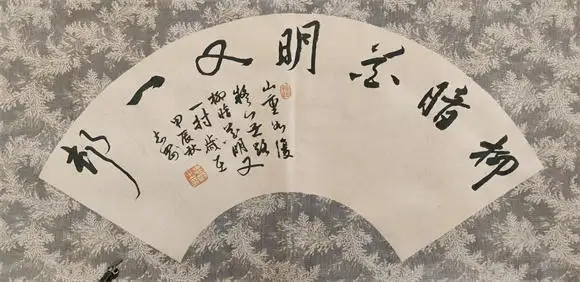 柳暗花明又一村
山重水復
疑无路
柳暗花明又
一村 歲在
甲辰秋